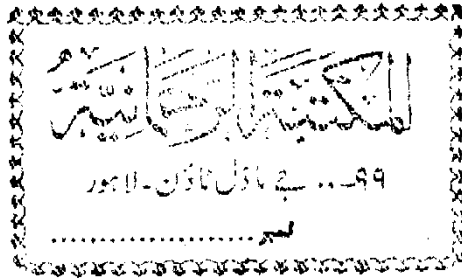 المکتبۃ الرحمانیۃ
۹۹... جے ماڈل ٹاؤن - لاہور
نمبر ........................